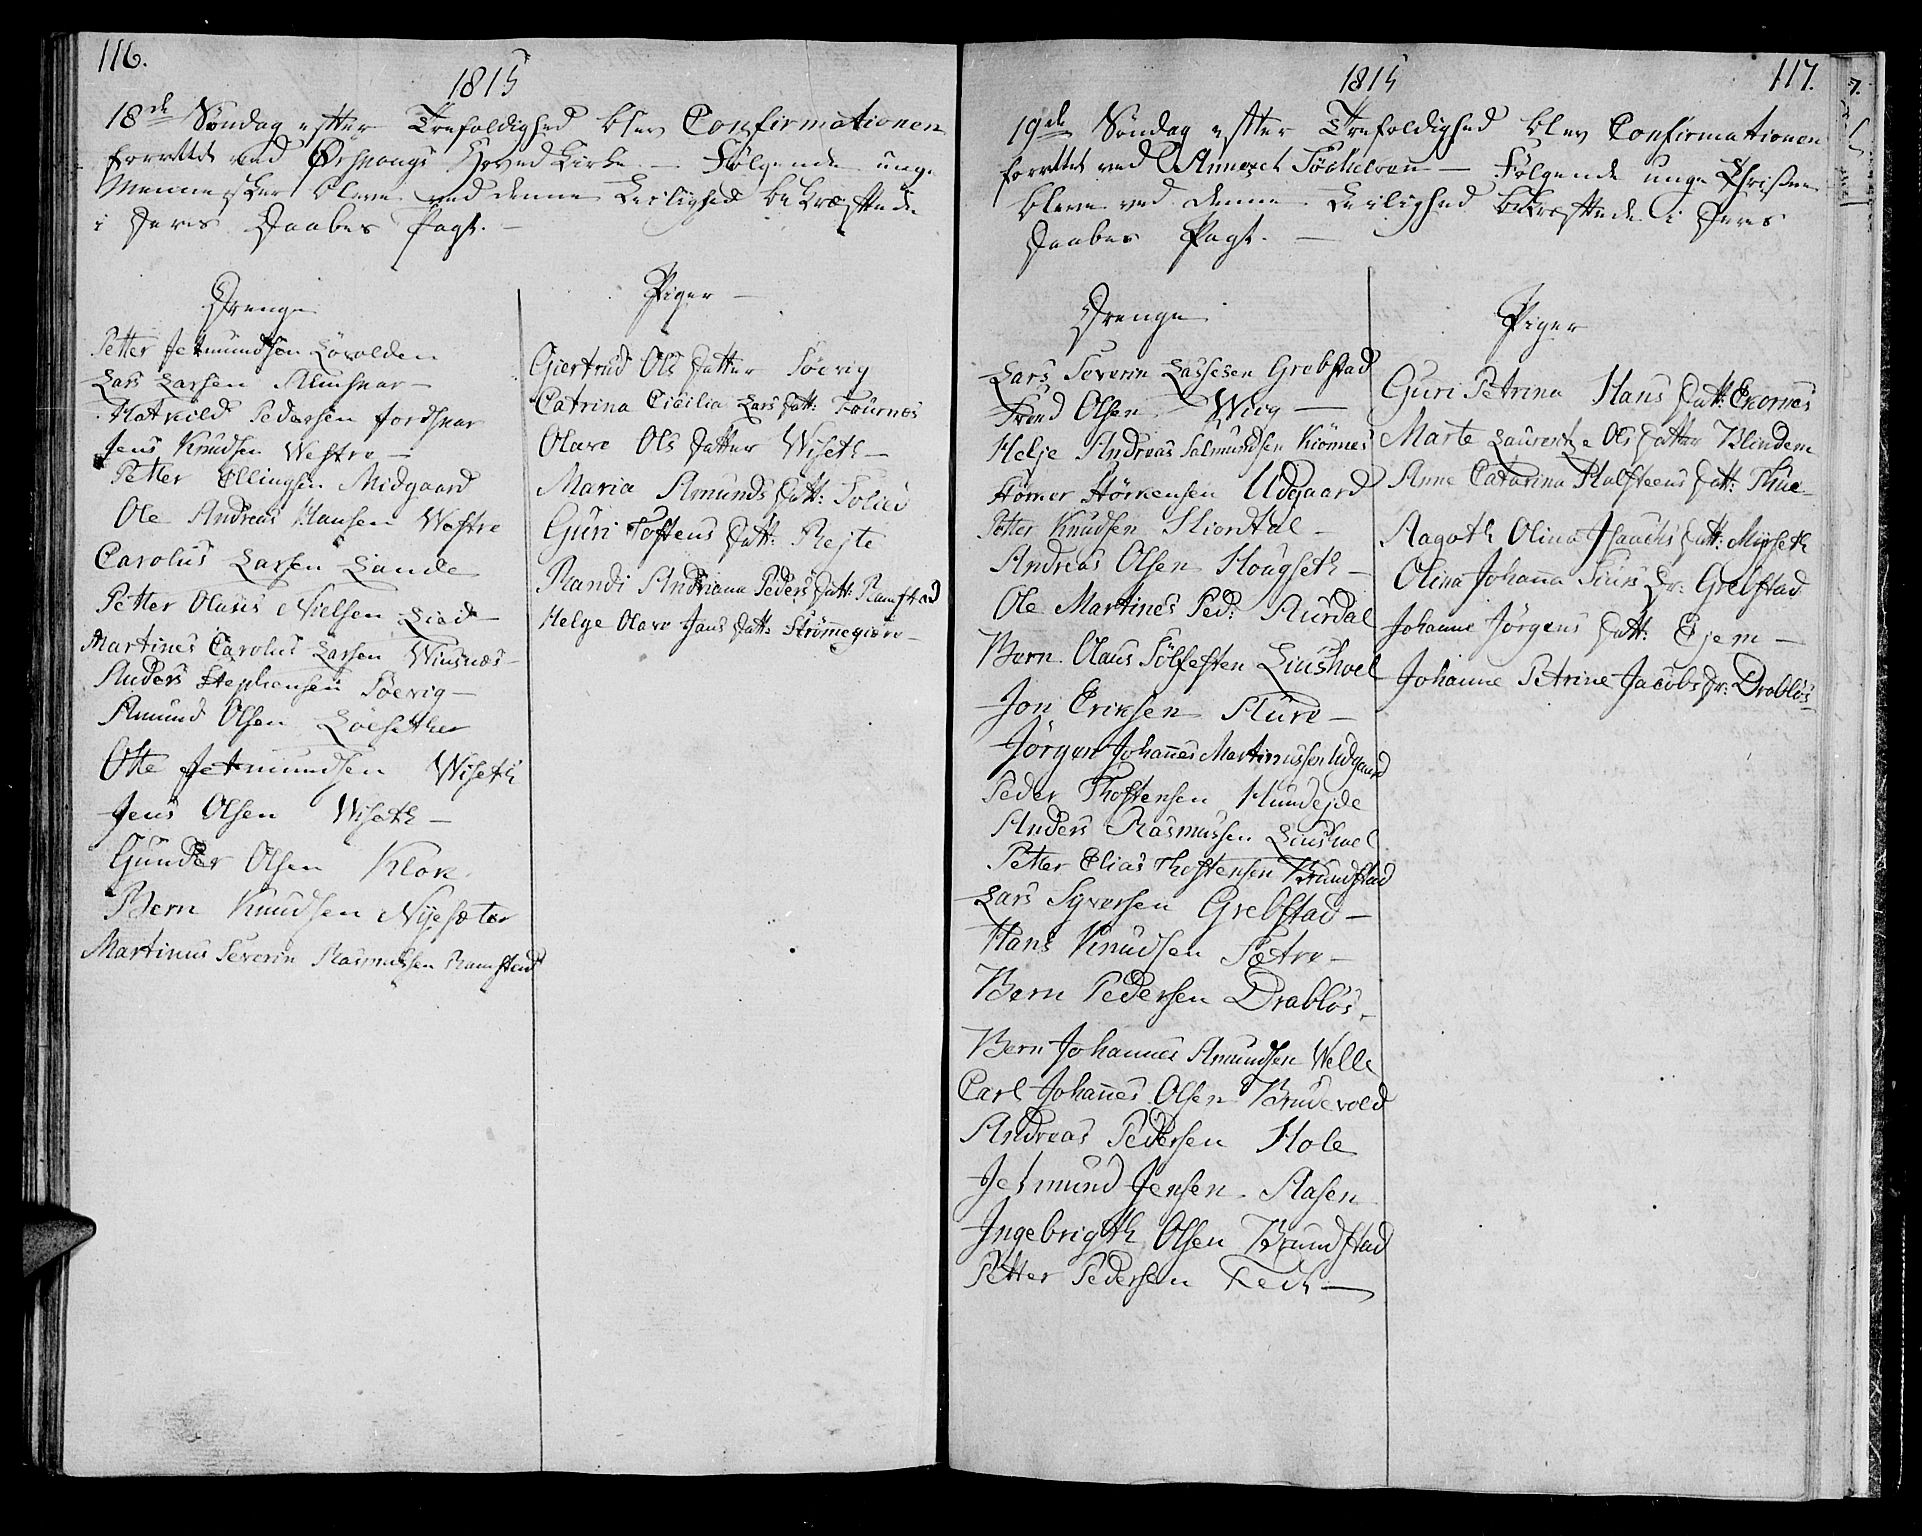 116.
1815
18de Søndag efter Trefoldighed blev Confirmationen
forrettet ved Ørschougs Hoved Kirke — Følgende unge
Mennesker bleve ved denne Leilighed bekræftede
i deres Daabes Pagt. —
Drenge
Petter Jetmundsøn Løvolden
Lars Larsen Almsnar —
Hatvild Pedersen Jordsnar
Jens Knudsen Westre —
Petter Ellingsen Midgaard
Ole Andreas Hansen Westre
Carolus Larsen Lande
Petter Olaus Nielsen Liad —
Martines Carolus Larsen Wiusnæs —
Anders Stephensen Søevig —
Amund Olsen Löesether
Otte Jetmundsen Wiseth
Jens Olsen Wiseth —
Gunder Olsen Klok
Bern Knudsen Nysæter
Martinus Severin Rasmussen Ramstad
Piger —
Giertrud Ols Datter Søevig
Catrina Cicilia Lars Datt: Fournes
Olave Ols Datter Wiseth —
Maria Amunds Datt: Solied
Guri Tostens Datt: Rejte
Randi Andriana Peders Datt: Ramstad
Helge Olave Jans Datt: Strømegiære —
1815
117.
19de Søndag efter Trefoldighed blev Confirmationen
forrettet ved Annexet Søchelven — Følgende unge Christne
bleve ved denne Leilighed bekræftede i deres
Daabes Pagt. —
Drenge
Lars Severin Lassesen Grebstad
Trond Olsen Wiig —
Helje Andreas Salmundsen Kiønnes
Størker Størkersen Udgaard
Petter Knudsen Skiortdal —
Andreas Olsen Hougseth —
Ole Martines Ped: Aurdal
Bern Olaus Sølfesten Liushoel
Jon Eriksen Aure —
Jørgen Johannes Martinussen Udgaard
Peder Thostensen Hundejde
Anders Rasmussen Liushoel
Petter Elias Thostensen Brundstad
Lars Syversen Grebstad —
Hans Knudsen Sætre —
Bern Pedersen Drabløs
Bern Johannes Amundsen Welle
Carl Johannes Olsen Brudevold
Andreas Pedersen Hole
Jetmund Jensen Aasen
Ingebrigth Olsen Brundstad
Petter Pedersen Fedt —
Piger
Guri Petrina Hans Datt: Ekornes
Marte Laurentze Ols Datter Blindem
Anne Catarina Halsteens Datt: Tue —
Aagoth Olina Isaachs Datt: Mieseth
Olina Johanna Siurs Dr: Grebstad
Johanne Jørgens Datt: Ejem —
Johanne Petrine Jacobs Dr: Drabløs